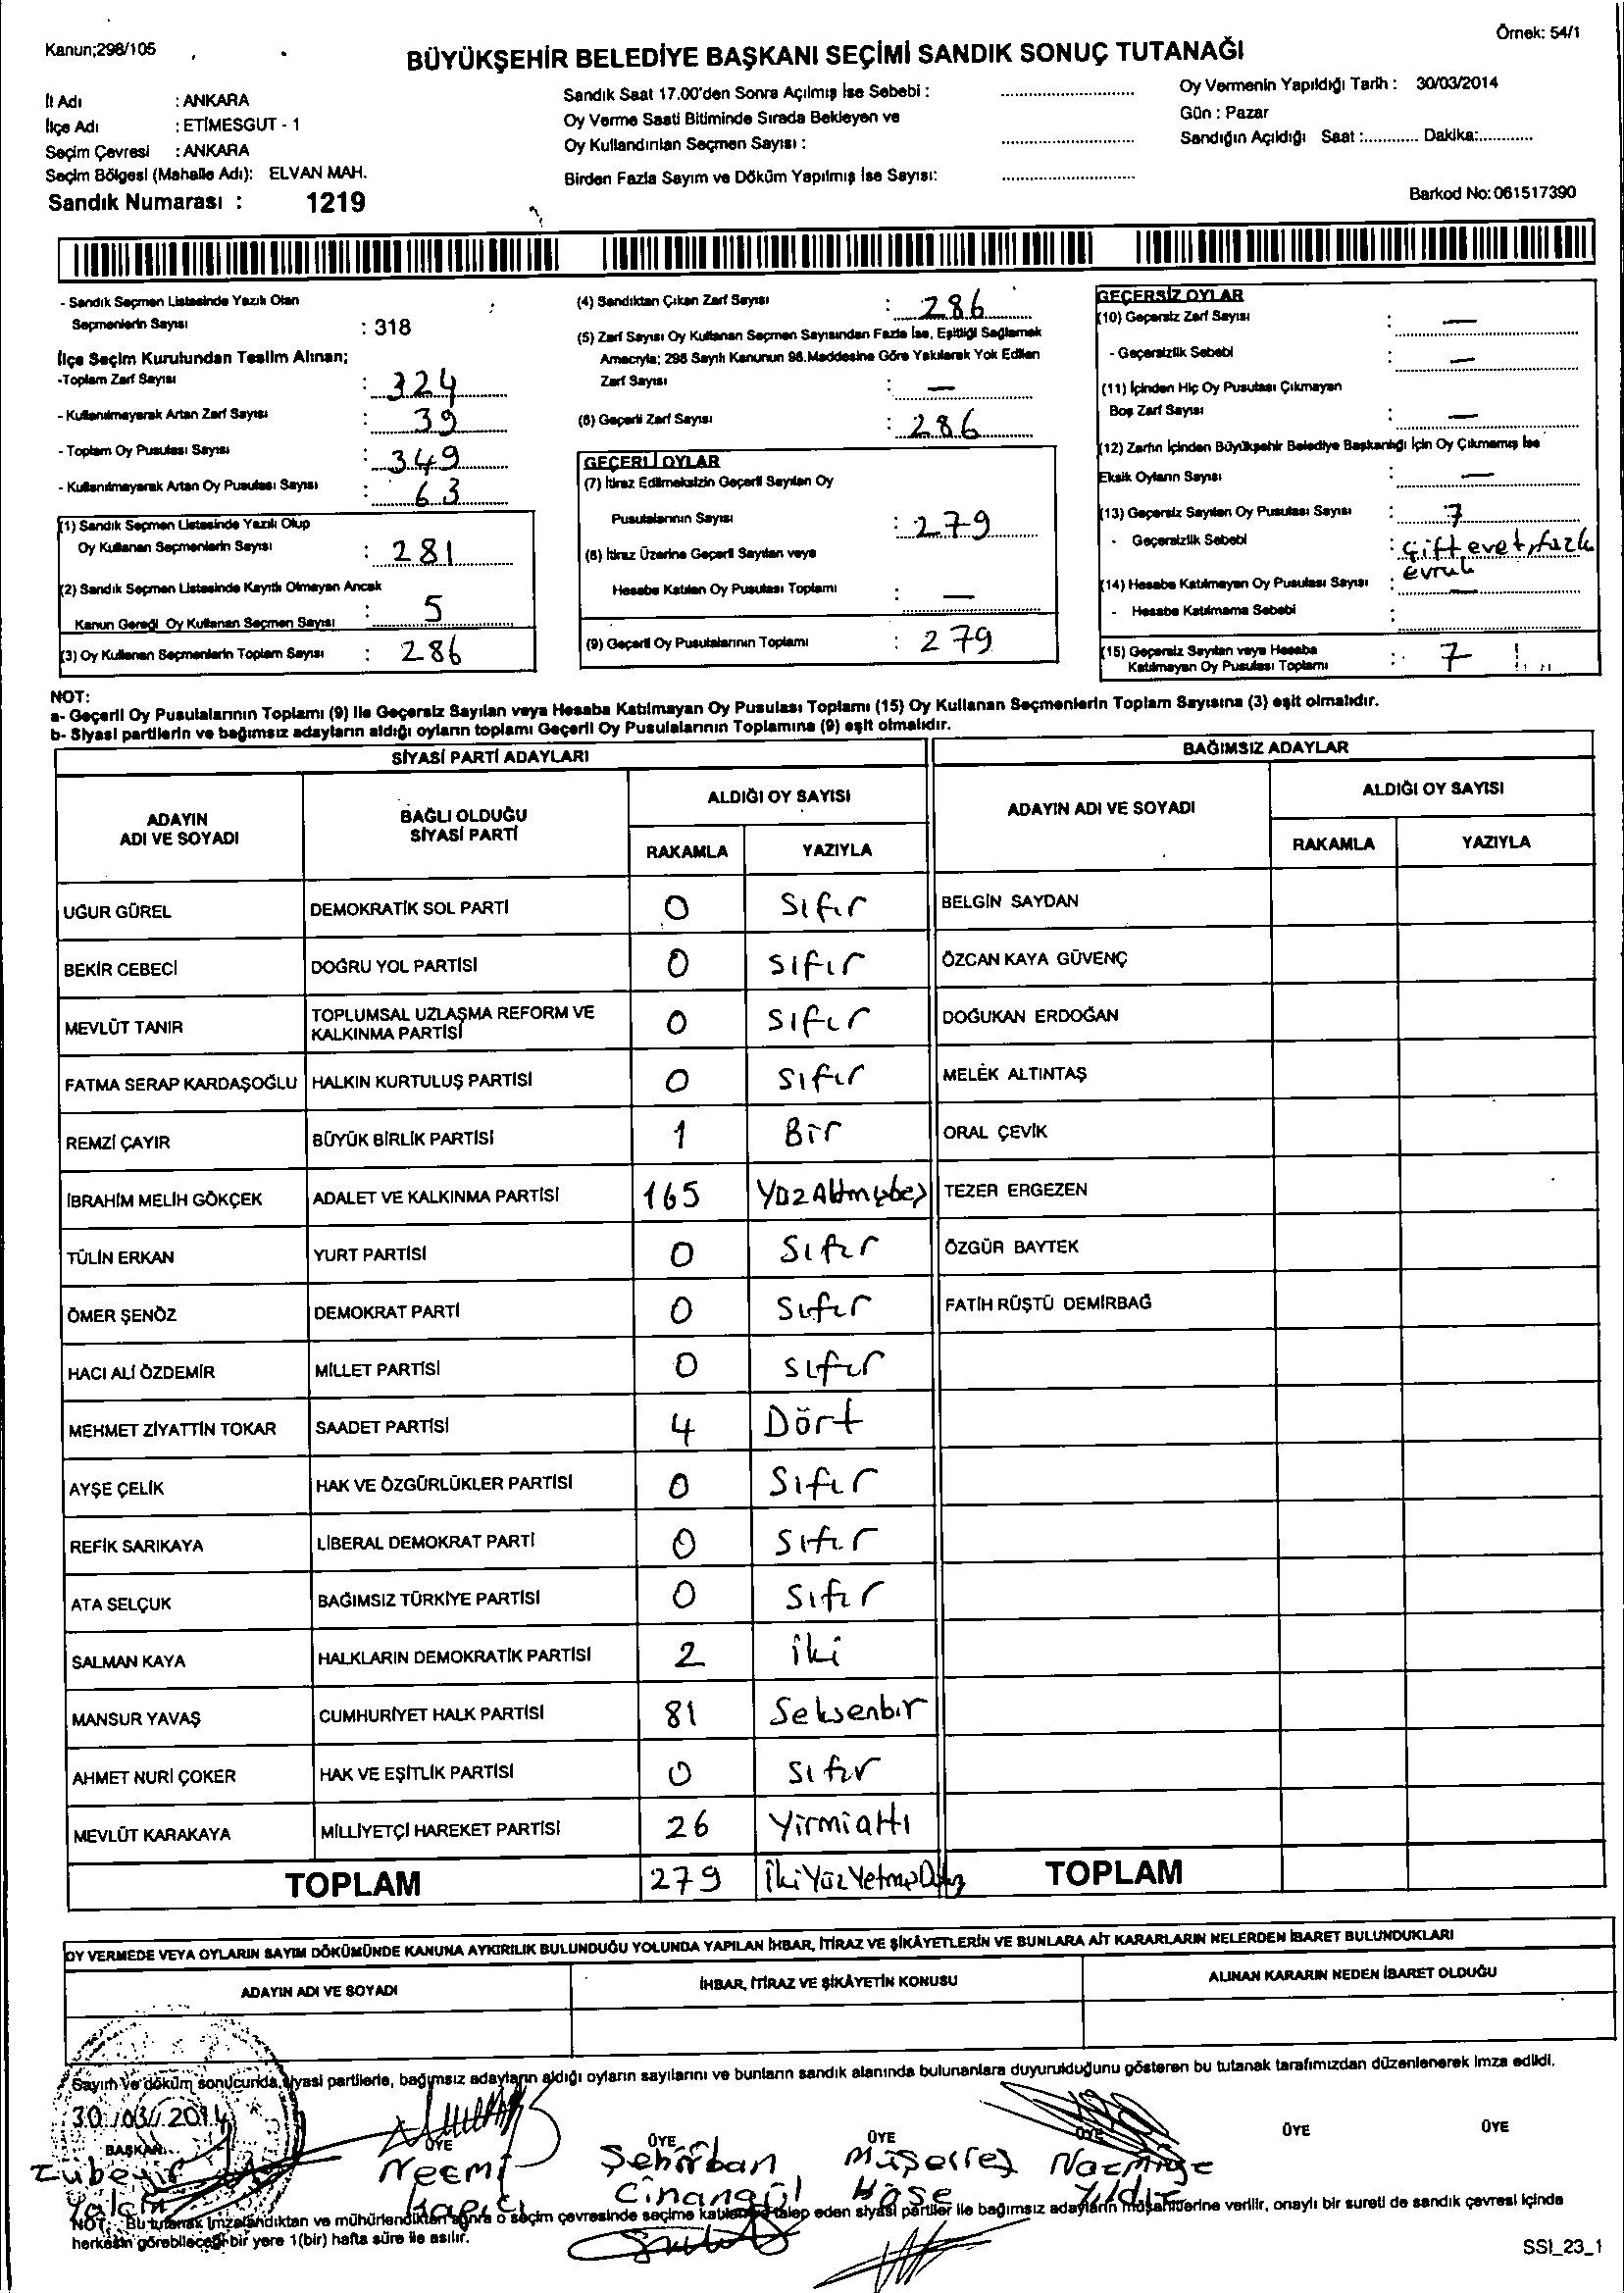 Kanun;298/105
Örnek: 54/1
BÜYÜKŞEHİR BELEDİYE BAŞKANI SEÇİMİ SANDIK SONUÇ TUTANAĞI
İl Adı : ANKARA
İlçe Adı : ETİMESGUT - 1
Seçim Çevresi : ANKARA
Seçim Bölgesi (Mahalle Adı): ELVAN MAH.
Sandık Numarası : 1219
Sandık Saat 17.00'den Sonra Açılmış İse Sebebi :
Oy Verme Saati Bitiminde Sırada Bekleyen ve
Oy Kullandırılan Seçmen Sayısı :
Birden Fazla Sayım ve Döküm Yapılmış İse Sayısı:
Oy Vermenin Yapıldığı Tarih : 30/03/2014
Gün : Pazar
Sandığın Açıldığı Saat :............ Dakika:............
Barkod No:061517390
- Sandık Seçmen Listesinde Yazılı Olan
Seçmenlerin Sayısı : 318
İlçe Seçim Kurulundan Teslim Alınan;
-Toplam Zarf Sayısı : 324
- Kullanılmayarak Artan Zarf Sayısı : 39
- Toplam Oy Pusulası Sayısı : 349
- Kullanılmayarak Artan Oy Pusulası Sayısı : 63
(1) Sandık Seçmen Listesinde Yazılı Olup
Oy Kullanan Seçmenlerin Sayısı : 281
(2) Sandık Seçmen Listesinde Kayıtlı Olmayan Ancak
Kanun Gereği Oy Kullanan Seçmen Sayısı : 5
(3) Oy Kullanan Seçmenlerin Toplam Sayısı : 286
(4) Sandıktan Çıkan Zarf Sayısı : 286
(5) Zarf Sayısı Oy Kullanan Seçmen Sayısından Fazla İse, Eşitliği Sağlamak
Amacıyla; 298 Sayılı Kanunun 98.Maddesine Göre Yakılarak Yok Edilen
Zarf Sayısı : —
(6) Geçerli Zarf Sayısı : 286
GEÇERLİ OYLAR
(7) İtiraz Edilmeksizin Geçerli Sayılan Oy
Pusulalarının Sayısı : 279
(8) İtiraz Üzerine Geçerli Sayılan veya
Hesaba Katılan Oy Pusulası Toplamı : —
(9) Geçerli Oy Pusulalarının Toplamı : 279
GEÇERSİZ OYLAR
(10) Geçersiz Zarf Sayısı : —
- Geçersizlik Sebebi : —
(11) İçinden Hiç Oy Pusulası Çıkmayan
Boş Zarf Sayısı : —
(12) Zarfın İçinden Büyükşehir Belediye Başkanlığı İçin Oy Çıkmamış İse
Eksik Oyların Sayısı : —
(13) Geçersiz Sayılan Oy Pusulası Sayısı : 7
- Geçersizlik Sebebi : Çift evet, fazla
evrak
(14) Hesaba Katılmayan Oy Pusulası Sayısı : —
- Hesaba Katılmama Sebebi :
(15) Geçersiz Sayılan veya Hesaba
Katılmayan Oy Pusulası Toplamı : 7
NOT:
a- Geçerli Oy Pusulalarının Toplamı (9) ile Geçersiz Sayılan veya Hesaba Katılmayan Oy Pusulası Toplamı (15) Oy Kullanan Seçmenlerin Toplam Sayısına (3) eşit olmalıdır.
b- Siyasi partilerin ve bağımsız adayların aldığı oyların toplamı Geçerli Oy Pusulalarının Toplamına (9) eşit olmalıdır.
SİYASİ PARTİ ADAYLARI
BAĞIMSIZ ADAYLAR
ADAYIN
ADI VE SOYADI
BAĞLI OLDUĞU
SİYASİ PARTİ
ALDIĞI OY SAYISI
RAKAMLA YAZIYLA
ADAYIN ADI VE SOYADI
ALDIĞI OY SAYISI
RAKAMLA YAZIYLA
UĞUR GÜREL DEMOKRATİK SOL PARTİ 0 Sıfır BELGİN SAYDAN
BEKİR CEBECİ DOĞRU YOL PARTİSİ 0 Sıfır ÖZCAN KAYA GÜVENÇ
MEVLÜT TANIR TOPLUMSAL UZLAŞMA REFORM VE
KALKINMA PARTİSİ 0 Sıfır DOĞUKAN ERDOĞAN
FATMA SERAP KARDAŞOĞLU HALKIN KURTULUŞ PARTİSİ 0 Sıfır MELEK ALTINTAŞ
REMZİ ÇAYIR BÜYÜK BİRLİK PARTİSİ 1 Bir ORAL ÇEVİK
İBRAHİM MELİH GÖKÇEK ADALET VE KALKINMA PARTİSİ 165 YüzAltmışbeş TEZER ERGEZEN
TÜLİN ERKAN YURT PARTİSİ 0 Sıfır ÖZGÜR BAYTEK
ÖMER ŞENÖZ DEMOKRAT PARTİ 0 Sıfır FATİH RÜŞTÜ DEMİRBAĞ
HACI ALİ ÖZDEMİR MİLLET PARTİSİ 0 Sıfır
MEHMET ZİYATTİN TOKAR SAADET PARTİSİ 4 Dört
AYŞE ÇELİK HAK VE ÖZGÜRLÜKLER PARTİSİ 0 Sıfır
REFİK SARIKAYA LİBERAL DEMOKRAT PARTİ 0 Sıfır
ATA SELÇUK BAĞIMSIZ TÜRKİYE PARTİSİ 0 Sıfır
SALMAN KAYA HALKLARIN DEMOKRATİK PARTİSİ 2 İki
MANSUR YAVAŞ CUMHURİYET HALK PARTİSİ 81 Seksenbir
AHMET NURİ ÇOKER HAK VE EŞİTLİK PARTİSİ 0 Sıfır
MEVLÜT KARAKAYA MİLLİYETÇİ HAREKET PARTİSİ 26 Yirmialtı
TOPLAM 279 İkiYüzYetmişDokuz TOPLAM
OY VERMEDE VEYA OYLARIN SAYIM DÖKÜMÜNDE KANUNA AYKIRILIK BULUNDUĞU YOLUNDA YAPILAN İHBAR, İTİRAZ VE ŞİKÂYETLERİN VE BUNLARA AİT KARARLARIN NELERDEN İBARET BULUNDUKLARI
ADAYIN ADI VE SOYADI İHBAR, İTİRAZ VE ŞİKÂYETİN KONUSU ALINAN KARARIN NEDEN İBARET OLDUĞU
Sayım ve döküm sonucunda, siyasi partilerle, bağımsız adayların aldığı oyların sayılarını ve bunların sandık alanında bulunanlara duyurulduğunu gösteren bu tutanak tarafımızdan düzenlenerek imza edildi.
30/03/2014
BAŞKAN ÜYE ÜYE ÜYE ÜYE ÜYE ÜYE
Zübeyir Necmi Şehriban Müşerref Nazmiye
Yalçın Kapıcı Cinangül Köse Yıldız
NOT: Bu tutanak imzalandıktan ve mühürlendikten sonra o seçim çevresinde seçime katılan ve talep eden siyasi partiler ile bağımsız adayların müşahitlerine verilir, onaylı bir sureti de sandık çevresi içinde
herkesin görebileceği bir yere 1(bir) hafta süre ile asılır.
SSI_23_1